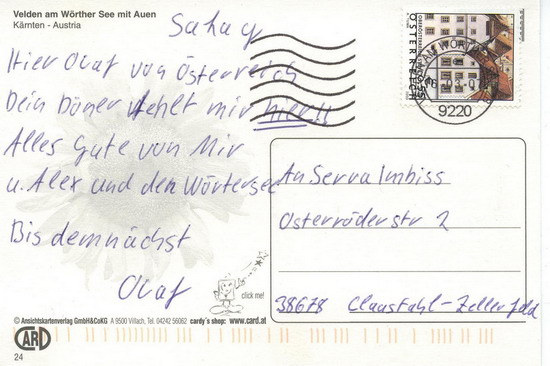 Velden am Wörther See mit Auen
Kärnten - Austria
Hier Olaf von Österreich
Dein Döner fehlt mir hier!!
Alles Gute von Mir
u. Alex und den Wörtersee
Bis demnächst
Olaf
click me!
© Ansichtskartenverlag GmbH&CoKG A 9500 Villach, Tel. 04242 56062 cardy's shop: www.card.at
CARD
24
ÖSTERREICH
9220
An Serva Imbiss
Osteröderstr 2
38678 Claustahl-Zellerfeld